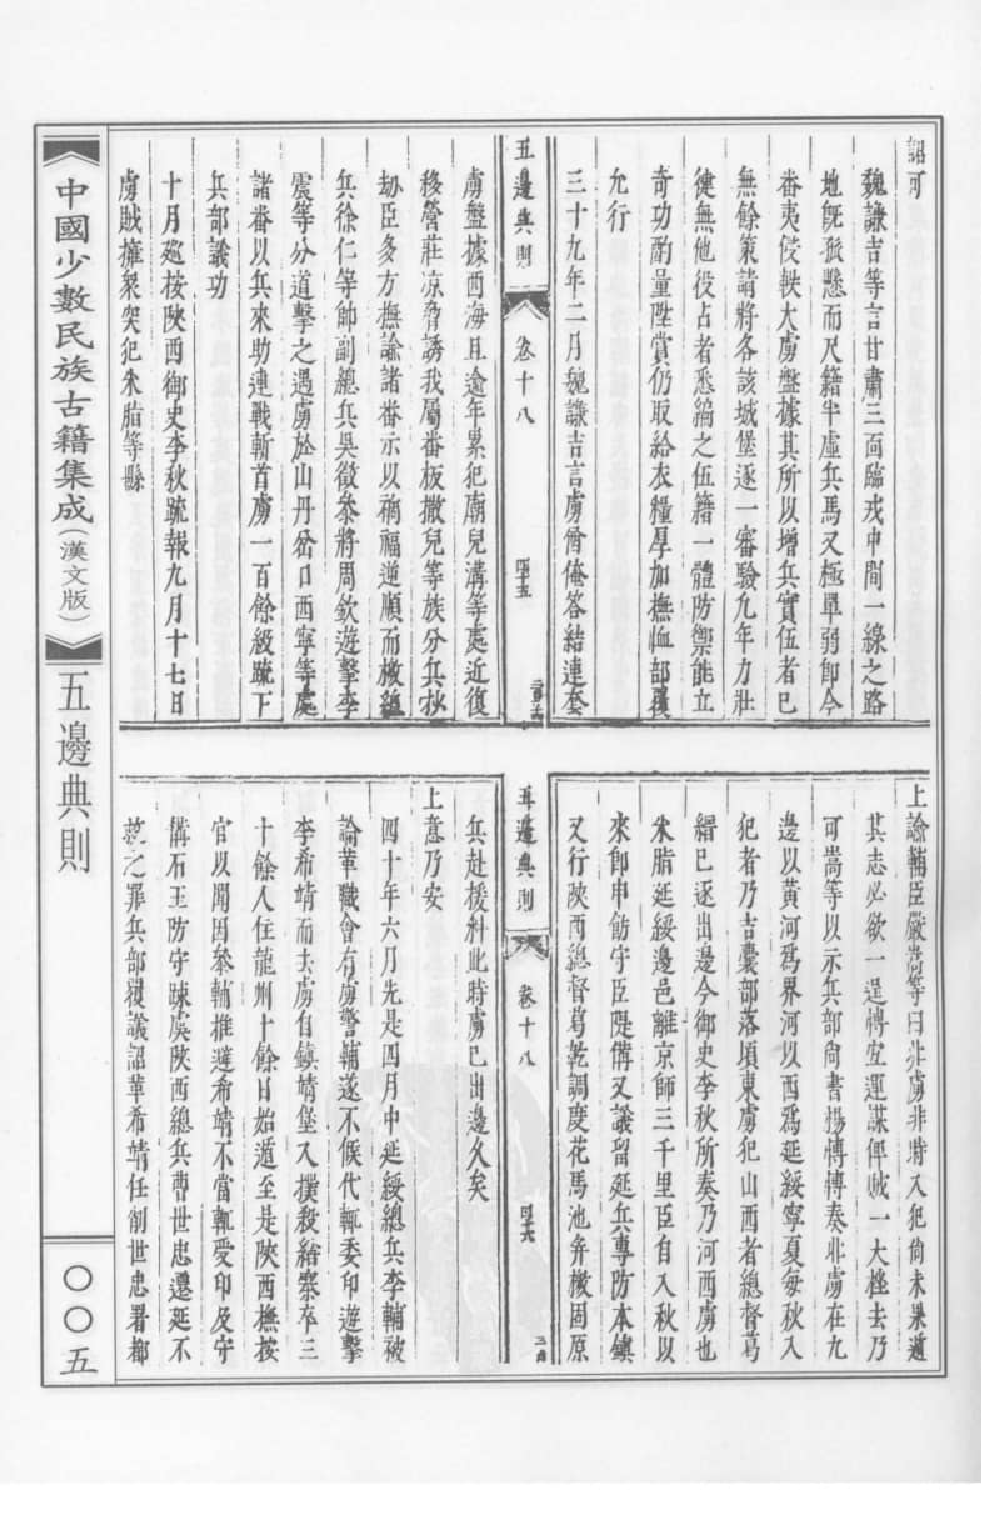 詔可
魏謙吉等言甘肅三面臨戎中間一線之路
地旣孤懸而尺籍半虛兵馬又極單弱卽今
番夷侵軼大虜盤據其所以增兵實伍者已
無餘策請將各該城堡逐一審驗九年力壯
健無他役占者悉編之伍籍一體防禦能立
奇功酌量陞賞仍取給衣糧厚加撫恤部覆
允行
三十九年二月魏謙吉言虜酋俺答結連套
五邊典則
卷十八
虜盤據西海且逾年累犯廟兒溝等處近復
移營莊凉脅誘我屬番板撒兒等族分兵抄
刼臣多方撫諭諸番示以禍福逆順而檄總
兵徐仁等帥副總兵吳徵參將周欽遊擊李
震等分道擊之遇虜於山丹岔口西寧等處
諸番以兵來助連戰斬首虜一百餘級疏下
兵部議功
十月廵按陜西御史李秋疏報九月十七日
虜賊擁衆突犯米脂等縣
上諭輔臣嚴嵩等曰北虜非時入犯尚未果遁
其志必欲一逞博宜運謀俾賊一大挫去乃
可嵩等以示兵部尚書楊博博奏北虜在九
邊以黃河爲界河以西爲延綏寧夏每秋入
犯者乃吉囊部落頃東虜犯山西者總督葛
縉已逐出邊今御史李秋所奏乃河西虜也
米脂延綏邊邑離京師三千里臣自入秋以
來卽申飭守臣隄備又議留延兵專防本鎮
又行陜西總督葛乾調度花馬池幷檄固原
五邊典則
卷十八
兵赴援料此時虜已出邊久矣
上意乃安
四十年六月先是四月中延綏總兵李輔被
論革職會有虜警輔遂不候代輒委印遊擊
李希靖而去虜自鎮靖堡入撲殺結寨卒三
十餘人住龍州十餘日始遁至是陜西撫按
官以聞因叅輔推避希靖不當輒受印及守
備石玉防守踈虞陜西總兵曹世忠遷延不
救之罪兵部覆議詔革希靖任削世忠署都
中國少數民族古籍集成（漢文版）
五邊典則
〇〇五